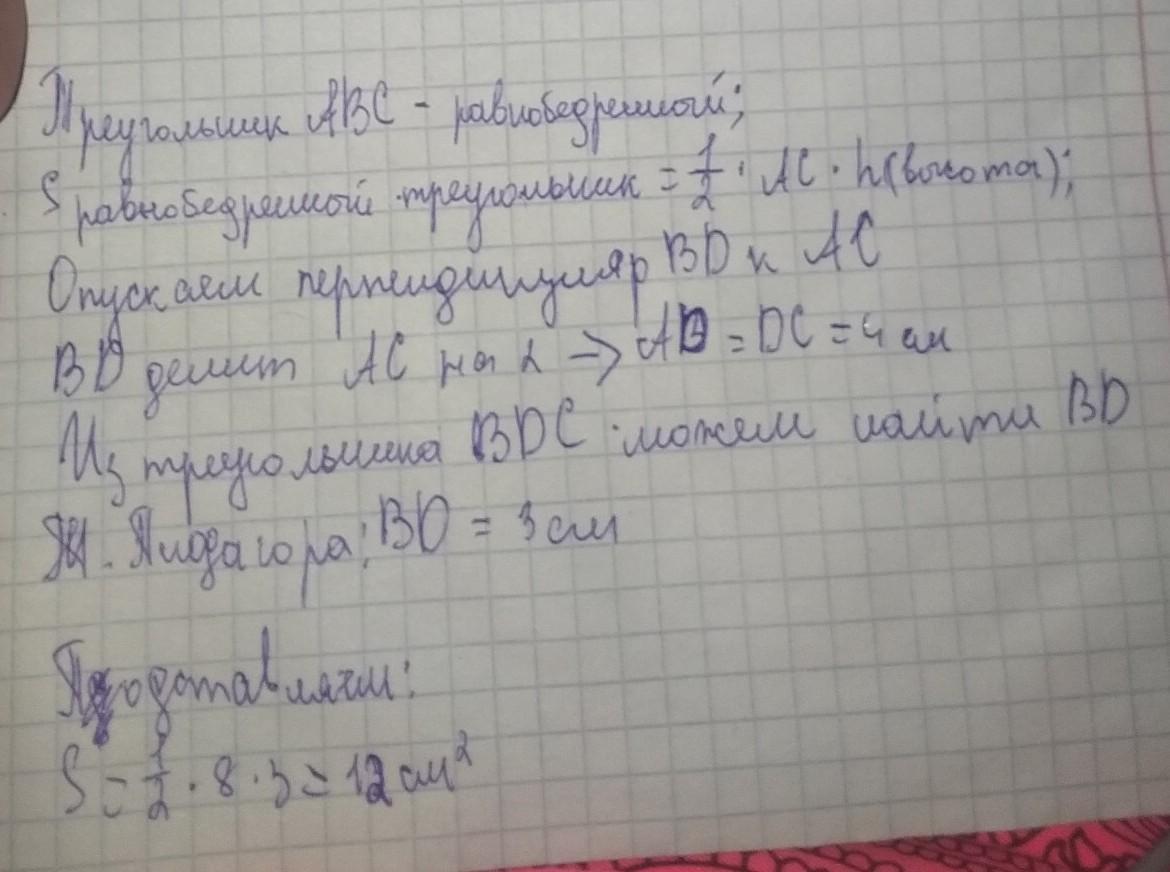 Треугольник ABC - равнобедренный;
S равнобедренной треугольник = 1/2 · AC · h(высота);
Опускаем перпендикуляр BD к AC
BD делит AC на 2 → AD = DC = 4 см
Из треугольника BDC можем найти BD
Т. Пифагора: BD = 3 см
Подставляем:
S = 1/2 · 8 · 3 = 12 см²